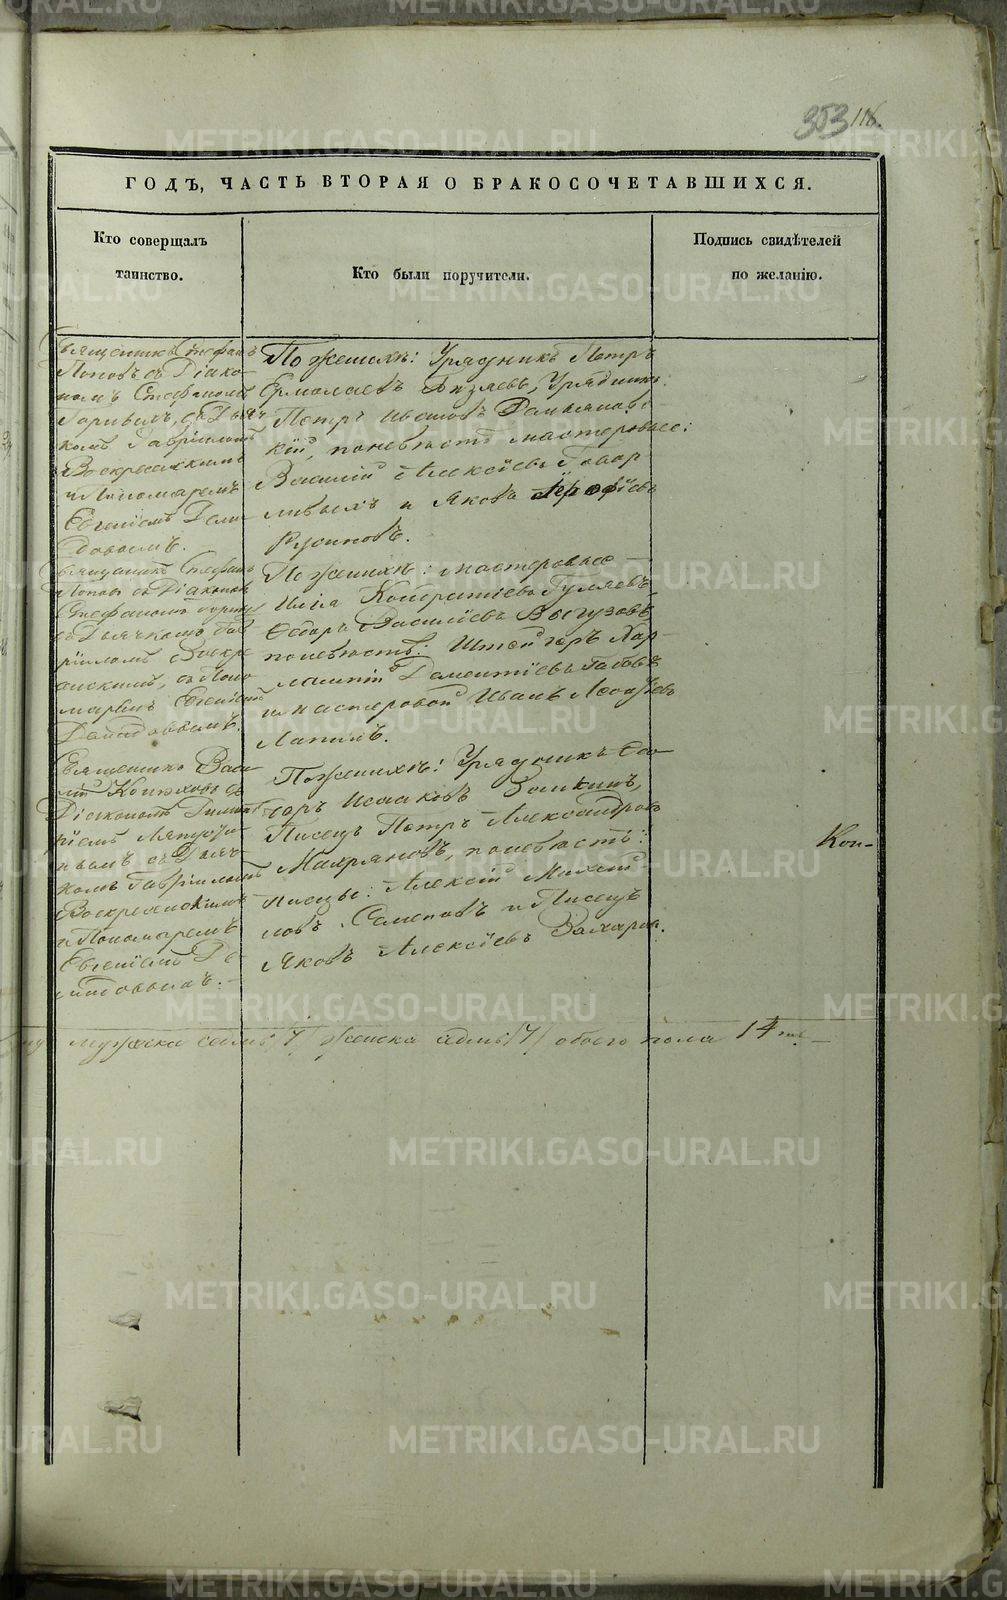 353 116.
ГОДЪ, ЧАСТЬ ВТОРАЯ О БРАКОСОЧЕТАВШИХСЯ.
Кто совершалъ
таинство.
Кто были поручители.
Подпись свидѣтелей
по желанію.
Священникъ Стефанъ
Поповъ съ Діако-
номъ Стефаномъ
съ Дьяч-
комъ Гавріиломъ
Воскресенскимъ
и Пономаремъ
Евгеніемъ Деми-
довымъ.
По женихѣ: Урядникъ Петръ
Ермолаевъ Урядникъ
Петръ Ивановъ
кій, по невѣстѣ мастеровые:
Василій Алексѣевъ Говор-
ливыхъ и Яковъ
Русиновъ.
Священникъ Стефанъ
Поповъ съ Діакономъ
Стефаномъ
съ Дьячкомъ Гав-
ріиломъ Воскре-
сенскимъ, съ Поно-
маремъ Евгеніемъ
Демидовымъ.
По женихѣ: мастеровые
Илья Кондратьевъ Гуляевъ,
Ѳедоръ Васильевъ
по невѣстѣ: Штейгеръ Хар-
лампій Дементіевъ
и мастеровой Иванъ
Лапинъ.
Священникъ Васи-
лій Конюховъ съ
Діакономъ
съ Дьяч-
комъ Гавріиломъ
Воскресенскимъ
и Пономаремъ
Евгеніемъ Де-
мидовымъ.
По женихѣ: Урядникъ Ѳео-
доръ Исааковъ
Писецъ Петръ Александровъ
по невѣстѣ:
Писцы: Алексій Михай-
ловъ Семеновъ и Писецъ
Яковъ Алексѣевъ Захаровъ.
Кон-
мужеска седмь /7/ женска седмь /7/ обоего пола 14
METRIKI.GASO-URAL.RU